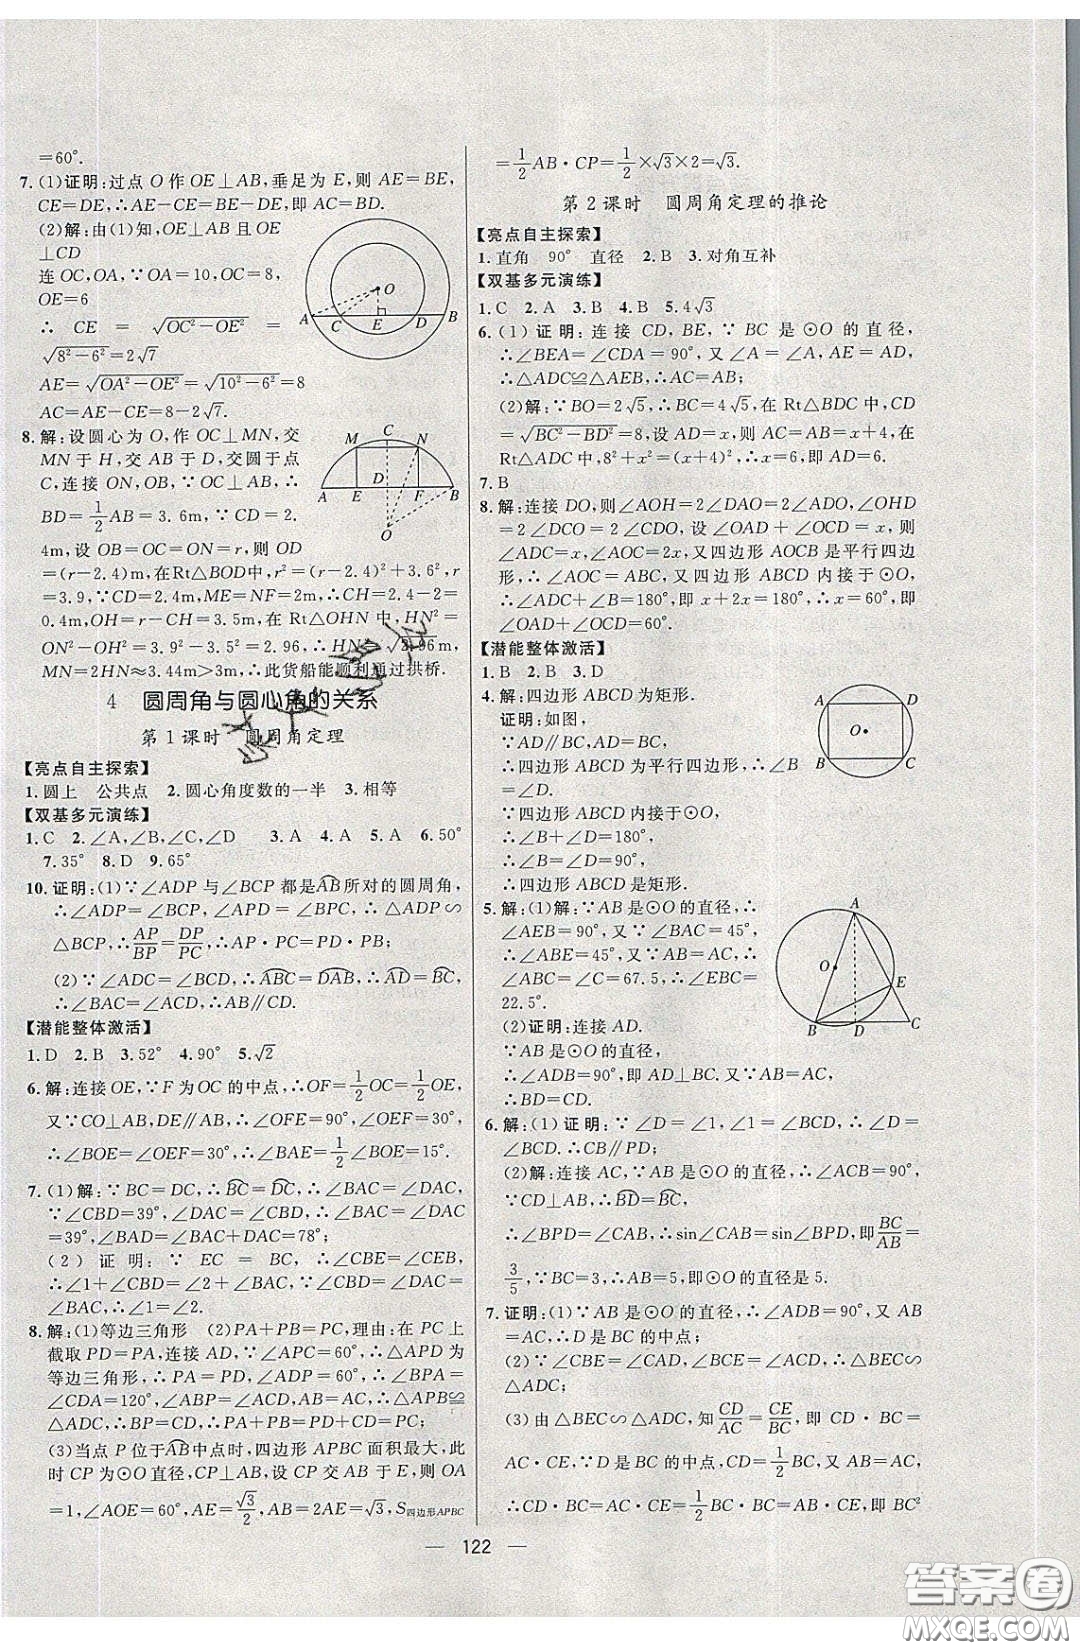 =60°.
7. (1)证明:过点 O 作 OE⊥AB,垂足为 E,则 AE=BE,
CE=DE,∴AE-CE=BE-DE,即 AC=BD.
(2)解:由(1)知,OE⊥AB 且 OE
⊥CD
连 OC,OA,∵OA=10,OC=8,
OE=6
∴ CE = √(OC²-OE²) =
√(8²-6²)=2√7
AE=√(OA²-OE²)=√(10²-6²)=8
AC=AE-CE=8-2√7.
O
A C E D B
8. 解:设圆心为 O,作 OC⊥MN,交
MN 于 H,交 AB 于 D,交圆于点
C,连接 ON,OB,∵OC⊥AB,∴
BD=1/2AB=3.6m,∵CD=2.
4m,设 OB=OC=ON=r,则 OD
=(r-2.4)m,在Rt△BOD中,r²=(r-2.4)²+3.6²,r
=3.9,∵CD=2.4m,ME=NF=2m,∴CH=2.4-2=
0.4m,OH=r-CH=3.5m,在 Rt△OHN 中,HN²=
ON²-OH²=3.9²-3.5²=2.96,∴HN=√2.96m,
MN=2HN≈3.44m>3m,∴此货船能顺利通过拱桥.
C
M N
D
A E F B
O
4 圆周角与圆心角的关系
第 1 课时 圆周角定理
【亮点自主探索】
1. 圆上 公共点 2. 圆心角度数的一半 3. 相等
【双基多元演练】
1. C 2. ∠A,∠B,∠C,∠D 3. A 4. A 5. A 6. 50°
7. 35° 8. D 9. 65°
10. 证明:(1)∵∠ADP 与∠BCP 都是AB所对的圆周角,
∴∠ADP=∠BCP,∵∠APD=∠BPC,∴△ADP∽
△BCP,∴AP/BP=DP/PC,∴AP·PC=PD·PB;
(2)∵∠ADC=∠BCD,∴ABC=DAB,∴AD=BC,
∴∠BAC=∠ACD,∴AB∥CD.
【潜能整体激活】
1. D 2. B 3. 52° 4. 90° 5. √2
6. 解:连接 OE,∵F 为 OC 的中点,∴OF=1/2OC=1/2OE,
又∵CO⊥AB,DE∥AB,∴∠OFE=90°,∠OEF=30°,
∴∠BOE=∠OEF=30°,∴∠BAE=1/2∠BOE=15°.
7. (1)解:∵BC=DC,∴BC=DC,∴∠BAC=∠DAC,
∵∠CBD=39°,∠DAC=∠CBD,∴∠BAC=∠DAC
=39°,∠BAD=∠BAC+DAC=78°;
(2)证明:∵ EC = BC,∴∠CBE=∠CEB,
∴∠1+∠CBD=∠2+∠BAC,∵∠CBD=∠
BAC,∴∠1=∠2.
8. 解:(1)等边三角形 (2)PA+PB=PC,理由:在 PC 上
截取 PD=PA,连接 AD,∵∠APC=60°,∴△APD 为
等边三角形,∴PA=PD,∠ADP=60°,∴∠BPA=
∠CDA=120°,∠ABP=∠ACD,AP=AD,∴△APB≌
△ADC,∴BP=CD,∴PA+PB=PC;
(3)当点 P 位于AB中点时,四边形 APBC 面积最大,此
时 CP 为⊙O直径,CP⊥AB,设 CP 交 AB 于 E,则 OA
=1,∠AOE=60°,AE=√3/2,AB=2AE=√3,S四边形APBC
=1/2AB·CP=1/2×√3×2=√3.
第 2 课时 圆周角定理的推论
【亮点自主探索】
1. 直角 90° 直径 2. B 3. 对角互补
【双基多元演练】
1. C 2. A 3. B 4. B 5. 4√3
6. (1)证明:连接 CD,BE,∵ BC 是⊙O 的直径,
∴∠BEA=∠CDA=90°,又∠A=∠A,AE=AD,
∴△ADC≌△AEB,∴AC=AB;
(2)解:∵BO=2√5,∴BC=4√5,在 Rt△BDC 中,CD
=√(BC²-BD²)=8,设 AD=x,则 AB=AC=x+4,在
Rt△ADC 中,8²+x²=(x+4)²,∴x=6,即 AD=6.
7. B
8. 解:连接 DO,则∠AOH=2∠DAO=2∠ADO,∠OHD
=2∠DCO=2∠CDO,设∠OAD+∠OCD=x,则
∠ADC=x,∠AOC=2x,又四边形 AOCB 是平行四边
形,∴∠AOC=∠ABC,又四边形 ABCD 内接于⊙O,
∴∠ADC+∠B=180°,即 x+2x=180°,∴x=60°,即
∠OAD+∠OCD=60°.
【潜能整体激活】
1. B 2. B 3. D
4. 解:四边形 ABCD 为矩形.
证明:如图,
∵AD∥BC,AD=BC,
∴四边形 ABCD 为平行四边形,∴∠B
=∠D.
∵四边形 ABCD 内接于⊙O,
∴∠B+∠D=180°,
∴∠B=∠D=90°,
∴四边形 ABCD 是矩形.
A D
O
B C
5. 解:(1)解:∵AB 是⊙O 的直径,∴
∠AEB=90°,又∵∠BAC=45°,
∴∠ABE=45°,又∵AB=AC,∴
∠ABC=∠C=67.5,∴∠EBC=
22.5°.
(2)证明:连接 AD.
∵AB是⊙O的直径,
∴∠ADB=90°,即 AD⊥BC.又∵AB=AC,
∴BD=CD.
A
O E
B D C
6. 解:(1)证明:∵∠D=∠1,∠1=∠BCD,∴∠D=
∠BCD.∴CB∥PD;
(2)解:连接 AC,∵AB 是⊙O的直径,∴∠ACB=90°,
∵CD⊥AB,∴BD=BC,
∴∠BPD=∠CAB,∴sin∠CAB=sin∠BPD,即BC/AB=
3/5,∵BC=3,∴AB=5,即⊙O的直径是5.
7. 证明:(1)∵AB 是⊙O的直径,∴∠ADB=90°,又 AB
=AC,∴D 是 BC 的中点;
(2)∵∠CBE=∠CAD,∠BCE=∠ACD,∴△BEC∽
△ADC;
(3)由△BEC∽△ADC,知CD/AC=CE/BC,即 CD·BC=
AC·CE,∵D 是 BC 的中点,∴CD=1/2BC,又 AB=AC,
∴CD·BC=AC·CE=1/2BC·BC=AB·CE,即 BC²
— 122 —
答案圈
MXQE.COM